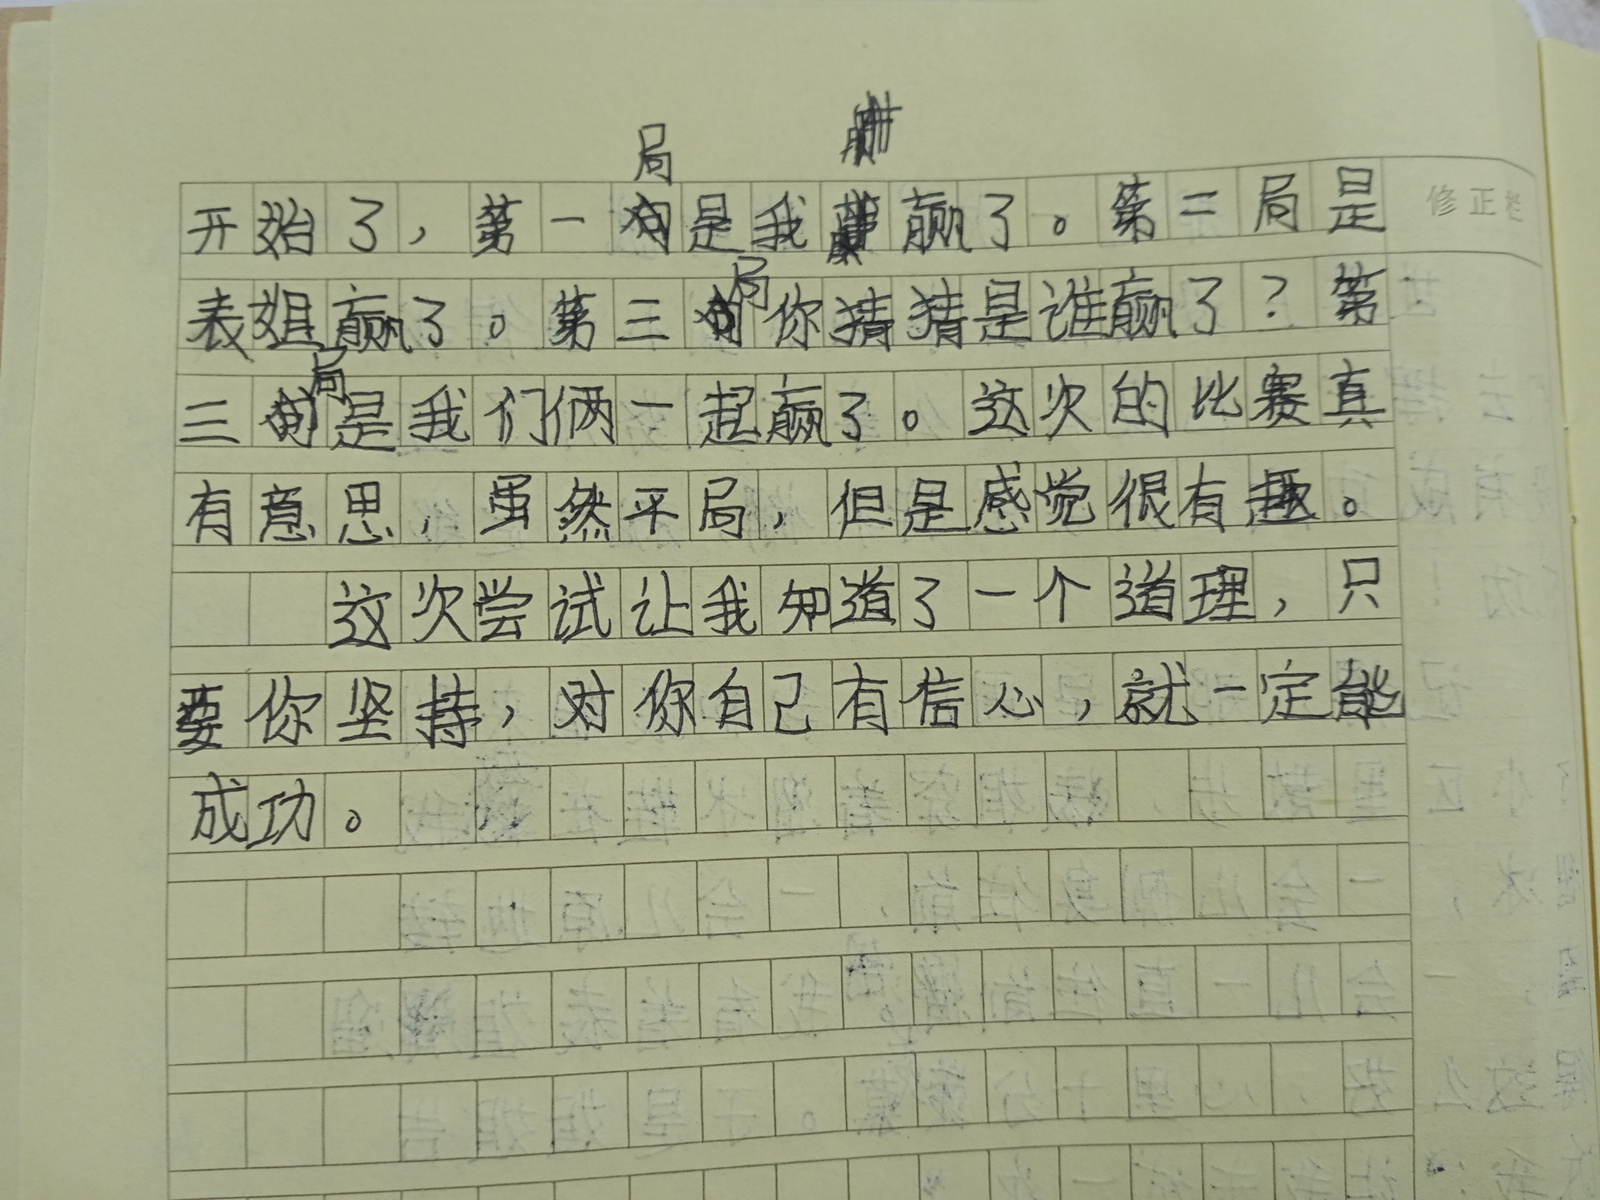 开始了，第一局是我赢了。第二局是
修正栏
表姐赢了。第三局你猜猜是谁赢了？第
三局是我们俩一起赢了。这次的比赛真
有意思，虽然平局，但是感觉很有趣。
这次尝试让我知道了一个道理，只
要你坚持，对你自己有信心，就一定能
成功。